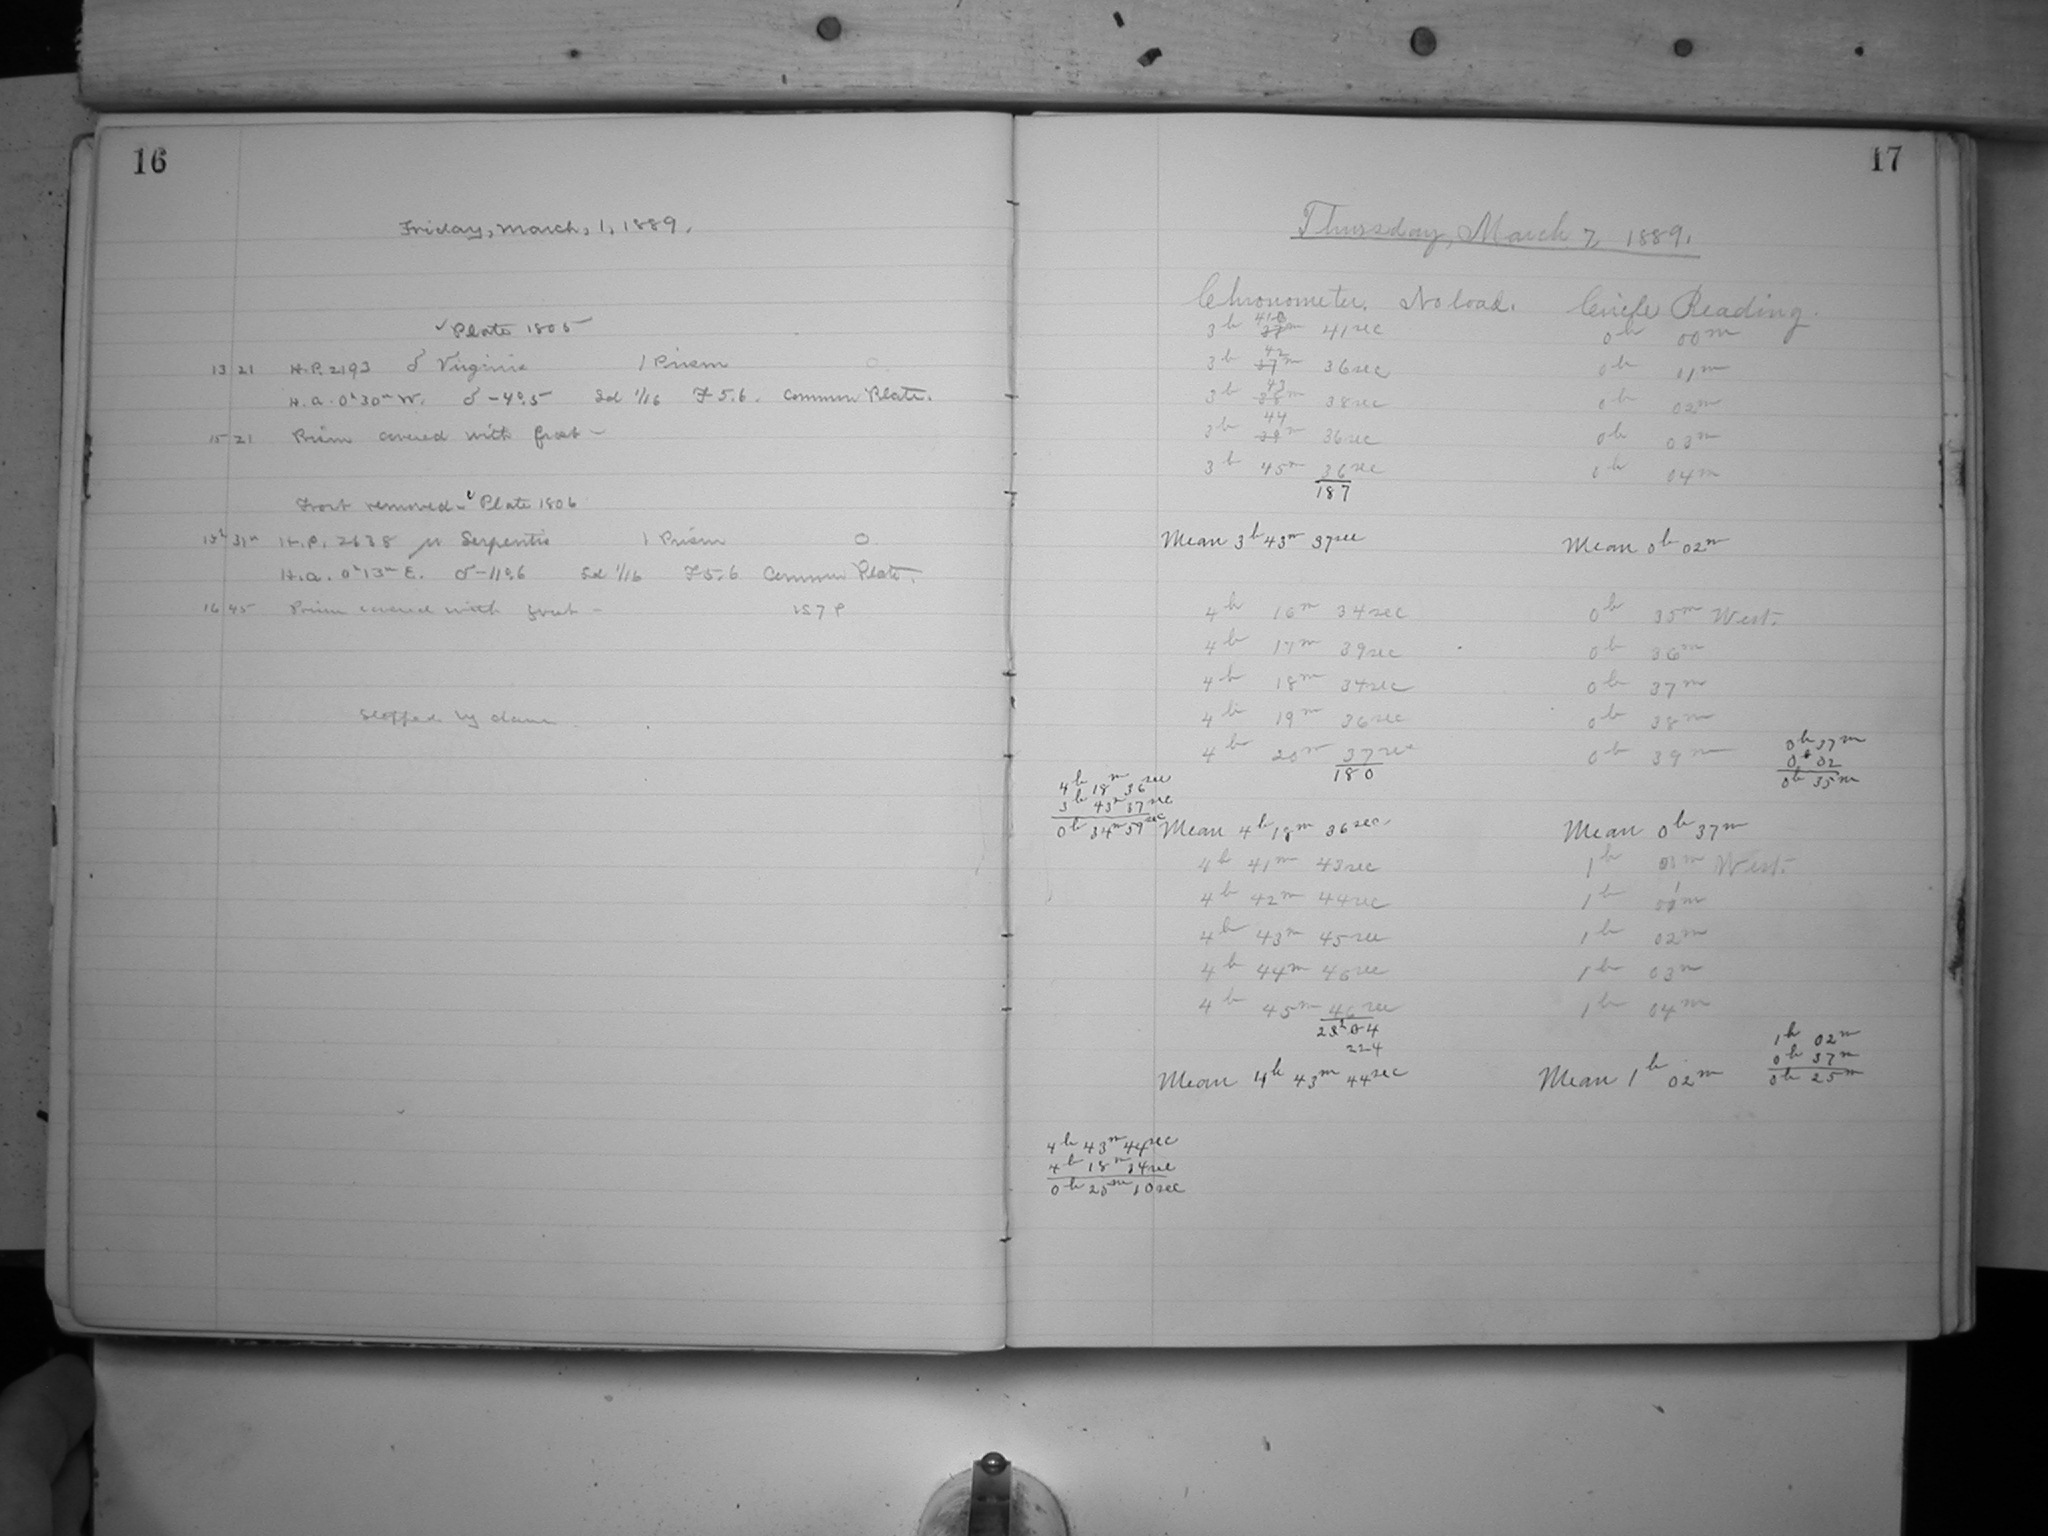 16
Friday, March, 1, 1889.
✓Plate 1805
13 21 H.P. 2193 θ Virginis 1 Prism O
H.a. 0h 30m W. δ -4°.5 Sd 1/16 F 5.6. Common Plate.
15 21 Prism covered with frost-
Frost removed- ✓Plate 1806
15h 31m H.P. 2638 μ Serpentis 1 Prism O.
H.a. 0h 13m E. δ -11°.6 Sd 1/16 F 5.6 Common Plate.
16 45 Prism covered with frost -
Stopped by dawn.
17
Thursday, March 7, 1889.
Chronometer. No load. Circle Reading.
3h 41m 41sec 0h 00m
3h 42m 36sec 0h 01m
3h 43m 38sec 0h 02m
3h 44m 36sec 0h 03m
3h 45m 36sec 0h 04m
187
Mean 3h 43m 37sec Mean 0h 02m
4h 16m 34sec 0h 35m West.
4h 17m 39sec 0h 36m
4h 18m 34sec 0h 37m
4h 19m 36sec 0h 38m
4h 20m 37sec 0h 39m
180
0h 37m
0h 02
0h 35m
4h 18m 36sec
3h 43m 37sec
0h 34m 59sec
Mean 4h 18m 36sec Mean 0h 37m
4h 41m 43sec 1h 00m West.
4h 42m 44sec 1h 01m
4h 43m 45sec 1h 02m
4h 44m 46sec 1h 03m
4h 45m 46sec 1h 04m
224
1h 02m
0h 37m
0h 25m
Mean 4h 43m 44sec Mean 1h 02m
4h 43m 44sec
4h 18m 34sec
0h 25m 10sec